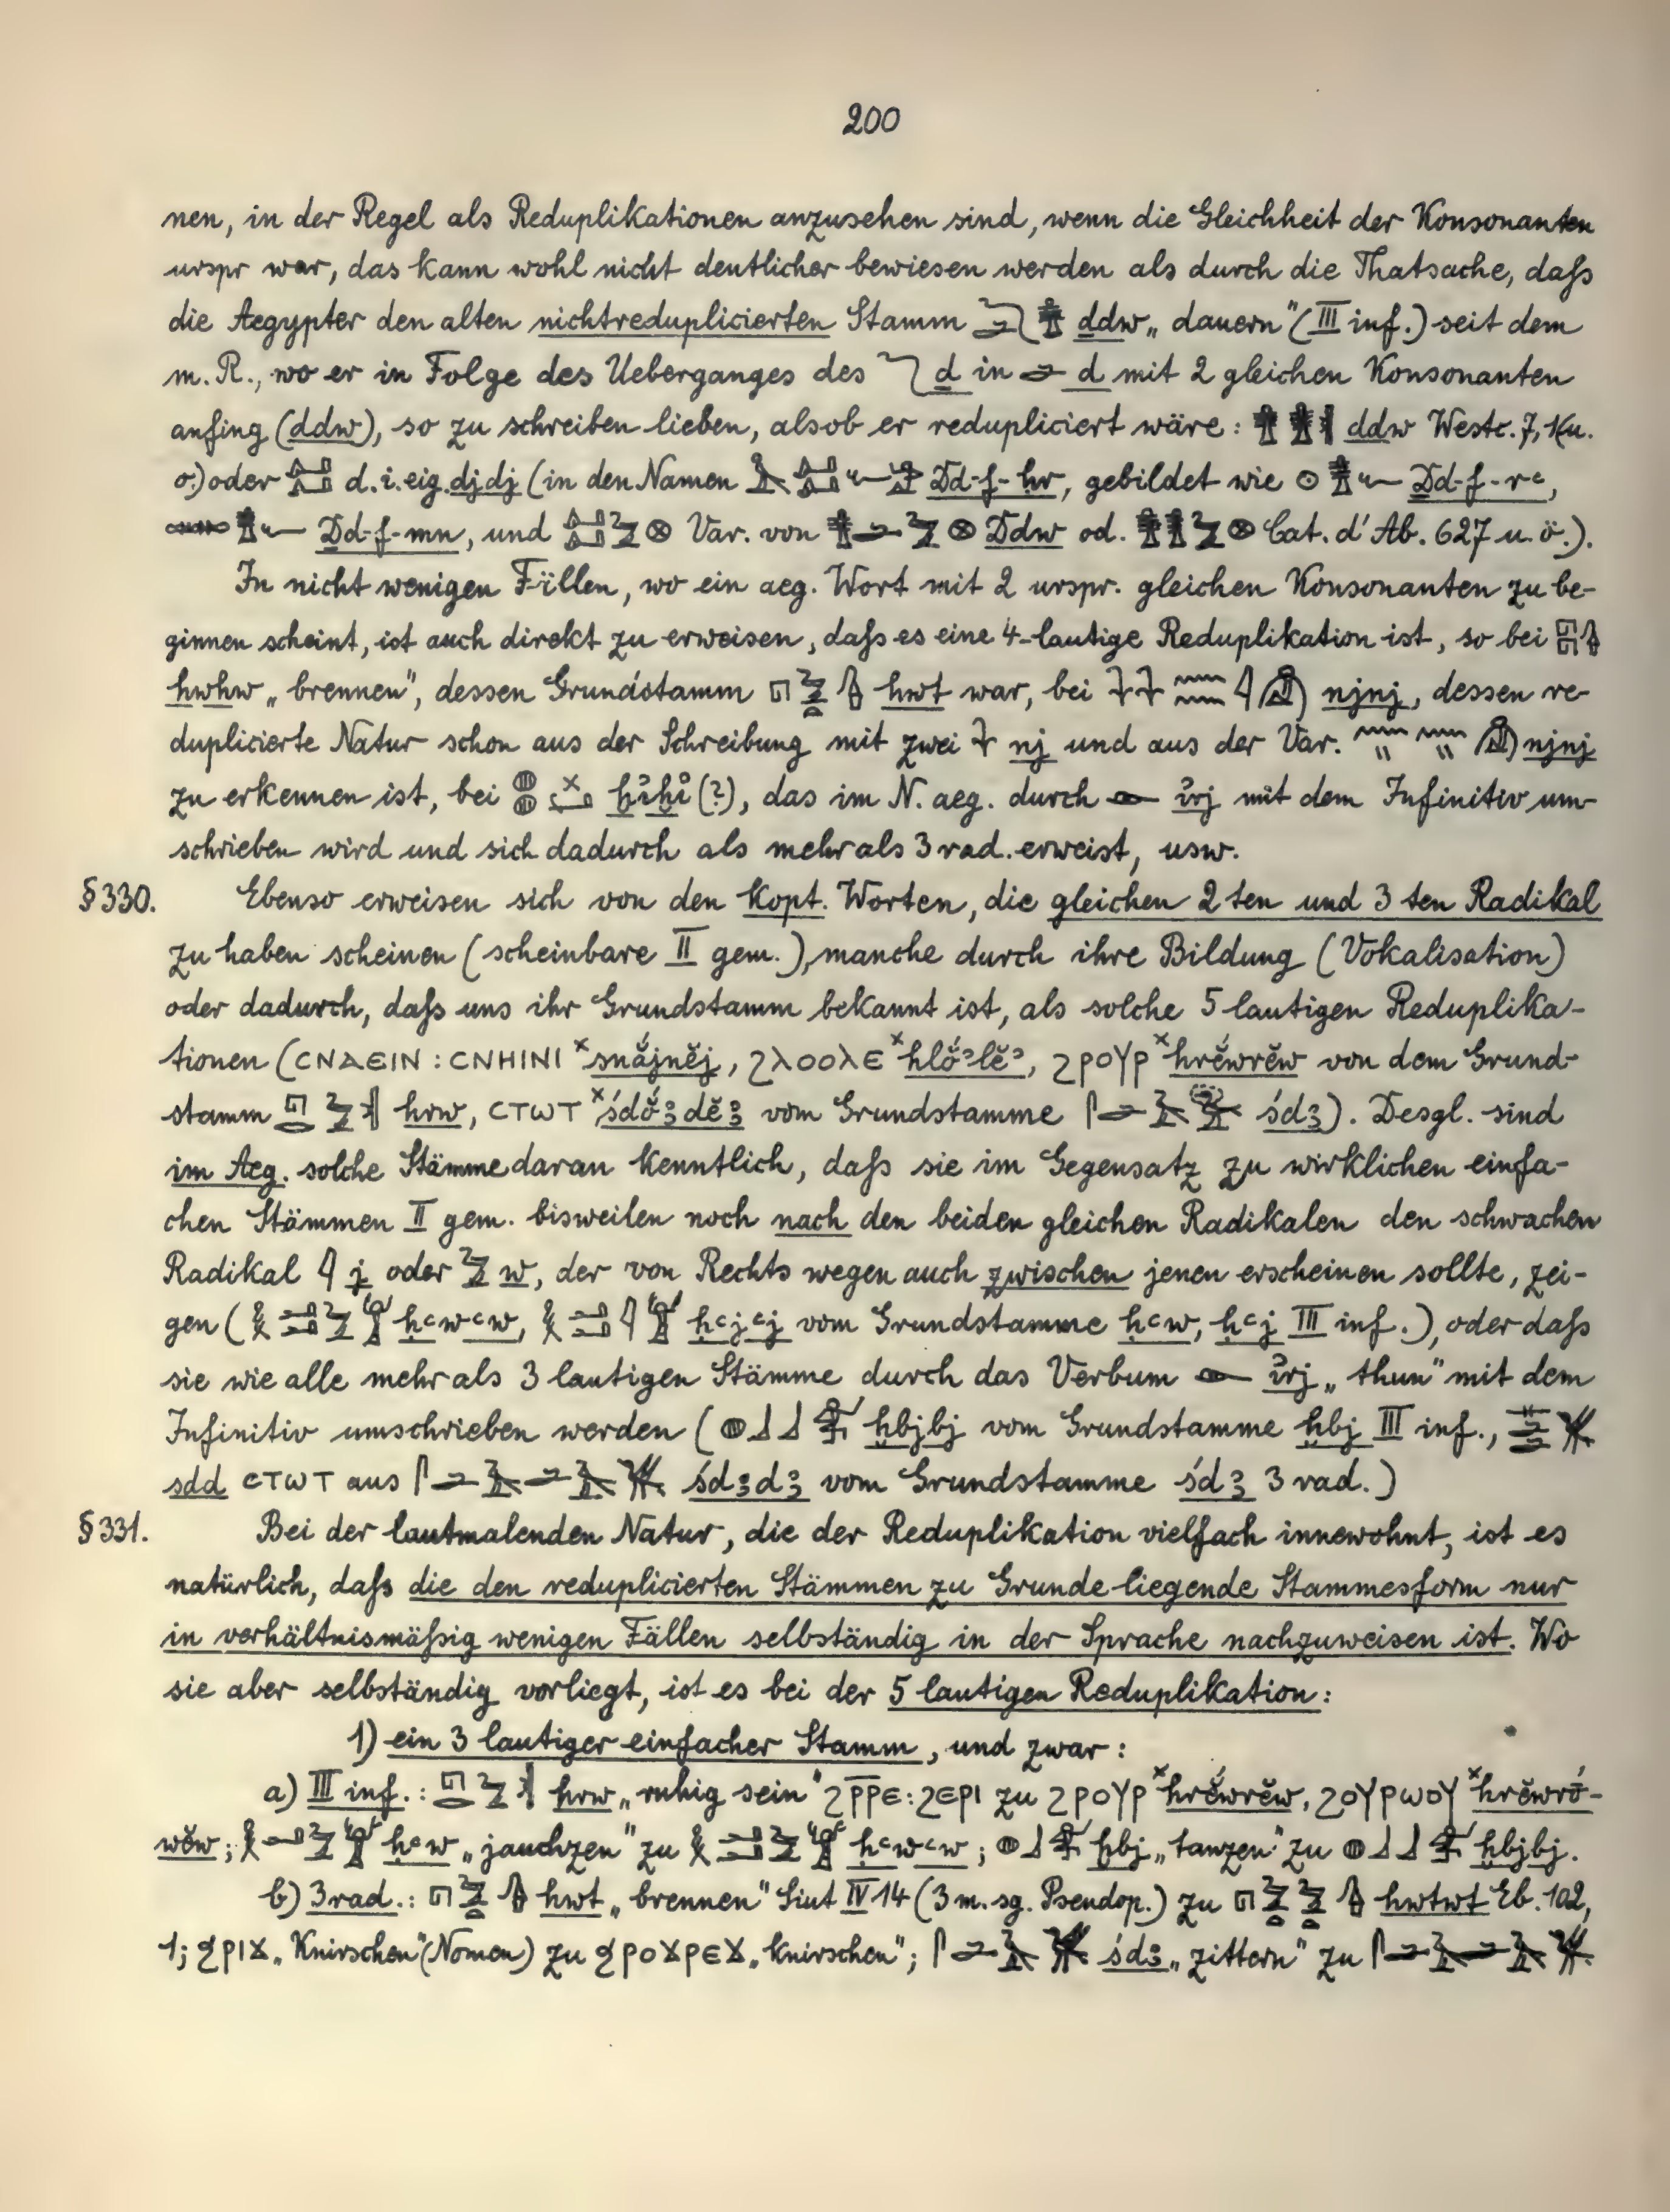 200
nen, in der Regel als Reduplikationen anzusehen sind, wenn die Gleichheit der Konsonanten
urspr war, das kann wohl nicht deutlicher bewiesen werden als durch die Thatsache, daſs
die Aegypter den alten nichtreduplicierten Stamm ḏdw „dauern" (III inf.) seit dem
m. R., wo er in Folge des Ueberganges des ḏ in d mit 2 gleichen Konsonanten
anfing (ddw), so zu schreiben lieben, alsob er redupliciert wäre: ddw Westc. 7, 1 (u.
o.) oder d. i. eig. djdj (in den Namen Dd-f-ḥr, gebildet wie Dd-f-rꜥ,
Dd-f-mn, und Var. von Ddw od. Cat. d'Ab. 627 u. ö.).
In nicht wenigen Fällen, wo ein aeg. Wort mit 2 urspr. gleichen Konsonanten zu be-
ginnen scheint, ist auch direkt zu erweisen, daſs es eine 4-lautige Reduplikation ist, so bei
hwhw „brennen", dessen Grundstamm hwt war, bei njnj, dessen re-
duplicierte Natur schon aus der Schreibung mit zwei nj und aus der Var. njnj
zu erkennen ist, bei (?), das im N. aeg. durch ı͗rj mit dem Infinitiv um-
schrieben wird und sich dadurch als mehr als 3 rad. erweist, usw.
§ 330. Ebenso erweisen sich von den Kopt. Worten, die gleichen 2 ten und 3 ten Radikal
zu haben scheinen (scheinbare II gem.), manche durch ihre Bildung (Vokalisation)
oder dadurch, daſs uns ihr Grundstamm bekannt ist, als solche 5 lautigen Reduplika-
tionen (ⲤⲚⲀⲈⲒⲚ : ⲤⲚⲎⲒⲚⲒ ˣsnắjnĕj, ϨⲖⲞⲞⲖⲈ ˣhlŏ́ꜣlĕꜣ, ϨⲢⲞⲨⲢ ˣhrĕ́wrĕw von dem Grund-
stamm hrw, ⲤⲦⲰⲦ ˣśdŏ́ꜣdĕꜣ vom Grundstamme śdꜣ). Desgl. sind
im Aeg. solche Stämme daran kenntlich, daſs sie im Gegensatz zu wirklichen einfa-
chen Stämmen II gem. bisweilen noch nach den beiden gleichen Radikalen den schwachen
Radikal j oder w, der von Rechts wegen auch zwischen jenen erscheinen sollte, zei-
gen (ḥꜥwꜥw, ḥꜥjꜥj vom Grundstamme ḥꜥw, ḥꜥj III inf.), oder daſs
sie wie alle mehr als 3 lautigen Stämme durch das Verbum ı͗rj „thun" mit dem
Infinitiv umschrieben werden (ḫbjbj vom Grundstamme ḫbj III inf.,
sdd ⲤⲦⲰⲦ aus śdꜣdꜣ vom Grundstamme śdꜣ 3 rad.)
§ 331. Bei der lautmalenden Natur, die der Reduplikation vielfach innewohnt, ist es
natürlich, daſs die den reduplicierten Stämmen zu Grunde liegende Stammesform nur
in verhältnismäſsig wenigen Fällen selbständig in der Sprache nachzuweisen ist. Wo
sie aber selbständig vorliegt, ist es bei der 5 lautigen Reduplikation:
1) ein 3 lautiger einfacher Stamm, und zwar:
a) III inf.: hrw „ruhig sein" ϨⲢ̅Ⲣ̅Ⲉ : ϨⲈⲢⲒ zu ϨⲢⲞⲨⲢ ˣhrĕ́wrĕw, ϨⲞⲨⲢⲰⲞⲨ ˣhrĕwrṓ-
wĕw; ḥꜥw „jauchzen" zu ḥꜥwꜥw; ḫbj „tanzen" zu ḫbjbj.
b) 3 rad.: hwt „brennen" Siut IV 14 (3 m. sg. Pseudop.) zu hwtwt Eb. 102,
1; ϤⲢⲒϪ „Knirschen" (Nomen) zu ϤⲢⲞϪⲢⲈϪ „knirschen"; śdꜣ „zittern" zu